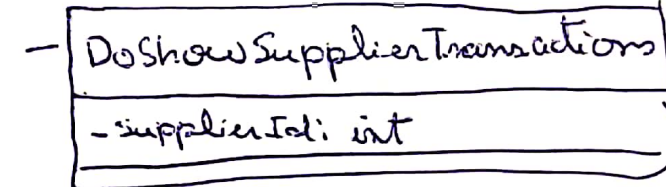 DoShowSupplierTransactions
-supplierId: int